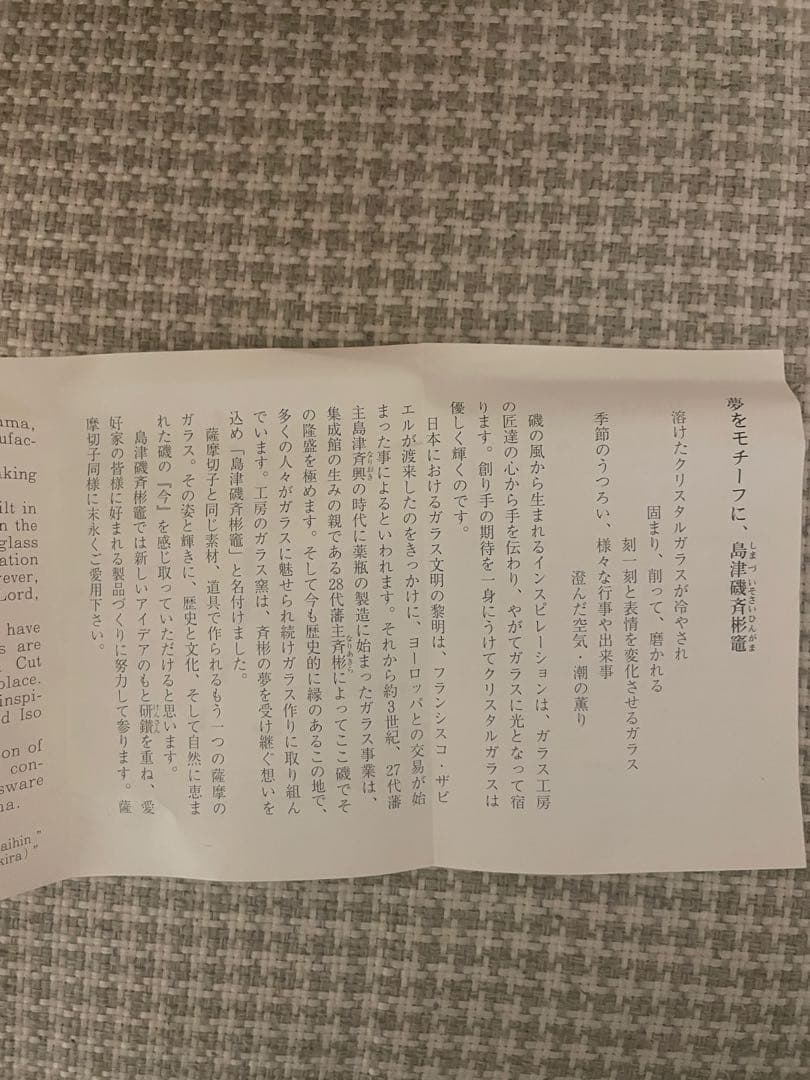 夢をモチーフに、島津磯斉彬竈
しまづいそさいひんがま
溶けたクリスタルガラスが冷やされ
固まり、削って、磨かれる
刻一刻と表情を変化させるガラス
季節のうつろい、様々な行事や出来事
澄んだ空気・潮の薫り
磯の風から生まれるインスピレーションは、ガラス工房
の匠達の心から手を伝わり、やがてガラスに光となって宿
ります。創り手の期待を一身にうけてクリスタルガラスは
優しく輝くのです。
日本におけるガラス文明の黎明は、フランシスコ・ザビ
エルが渡来したのをきっかけに、ヨーロッパとの交易が始
まった事によるといわれます。それから約3世紀、27代藩
主島津斉興の時代に薬瓶の製造に始まったガラス事業は、
なりおき
集成館の生みの親である28代藩主斉彬によってここ磯でそ
なりあきら
の隆盛を極めます。そして今も歴史的に縁のあるこの地で、
多くの人々がガラスに魅せられ続けガラス作りに取り組ん
でいます。工房のガラス窯は、斉彬の夢を受け継ぐ想いを
込め「島津磯斉彬竈」と名付けました。
薩摩切子と同じ素材、道具で作られるもう一つの薩摩の
ガラス。その姿と輝きに、歴史と文化、そして自然に恵ま
れた磯の『今』を感じ取っていただけると思います。
島津磯斉彬竈では新しいアイデアのもと研鑽を重ね、愛
けんさん
好家の皆様に好まれる製品づくりに努力して参ります。薩
摩切子同様に末永くご愛用下さい。
ama,
ufac-
aking
ilt in
n the
glass
ation
ever,
Lord,
have
s are
Cut
place.
inspi-
d Iso
on of
con-
sware
na.
aihin
kira) ”